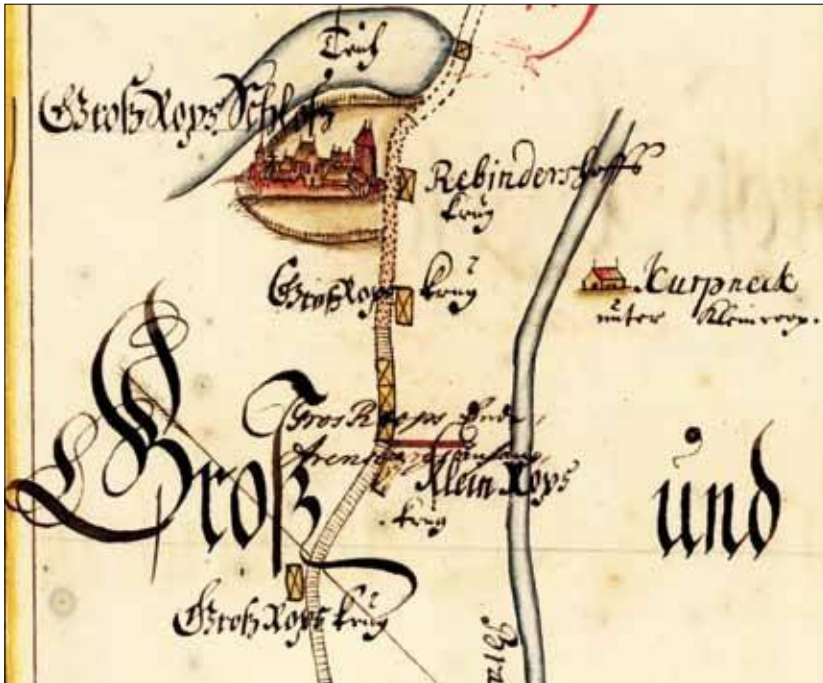 Teich
Groß Rops Schloß
Rebindershoffs
krug
Groß Rops krug
Kurpneck
unter Kleinroop.
Gros Roops Ende,
Klein Rops
krug
Groß
und
Groß Rops krug
Bra